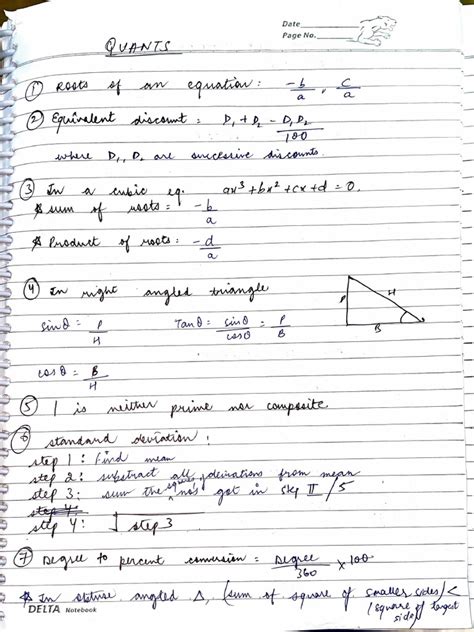 Date
Page No.
QUANTS
① Roots of an equation: -b/a, c/a
② Equivalent discount = D₁ + D₂ - D₁D₂/100
where D₁, D₂ are successive discounts.
③ In a cubic eq. ax³+bx²+cx+d = 0.
sum of roots = -b/a
Product of roots: -d/a
④ In right angled triangle
sinθ = P/H Tanθ = sinθ/cosθ = P/B
P H B
cosθ = B/H
⑤ 1 is neither prime nor composite
⑥ standard deviation:
step 1: Find mean
step 2: substract all deviations from mean
step 3: sum the squares nos got in step II / 5
step 4:
step 4: √step 3
⑦ Degree to percent conversion = Degree/360 × 100
* In obtuse angled Δ, (sum of square of smaller sides) <
(square of largest side)
DELTA Notebook